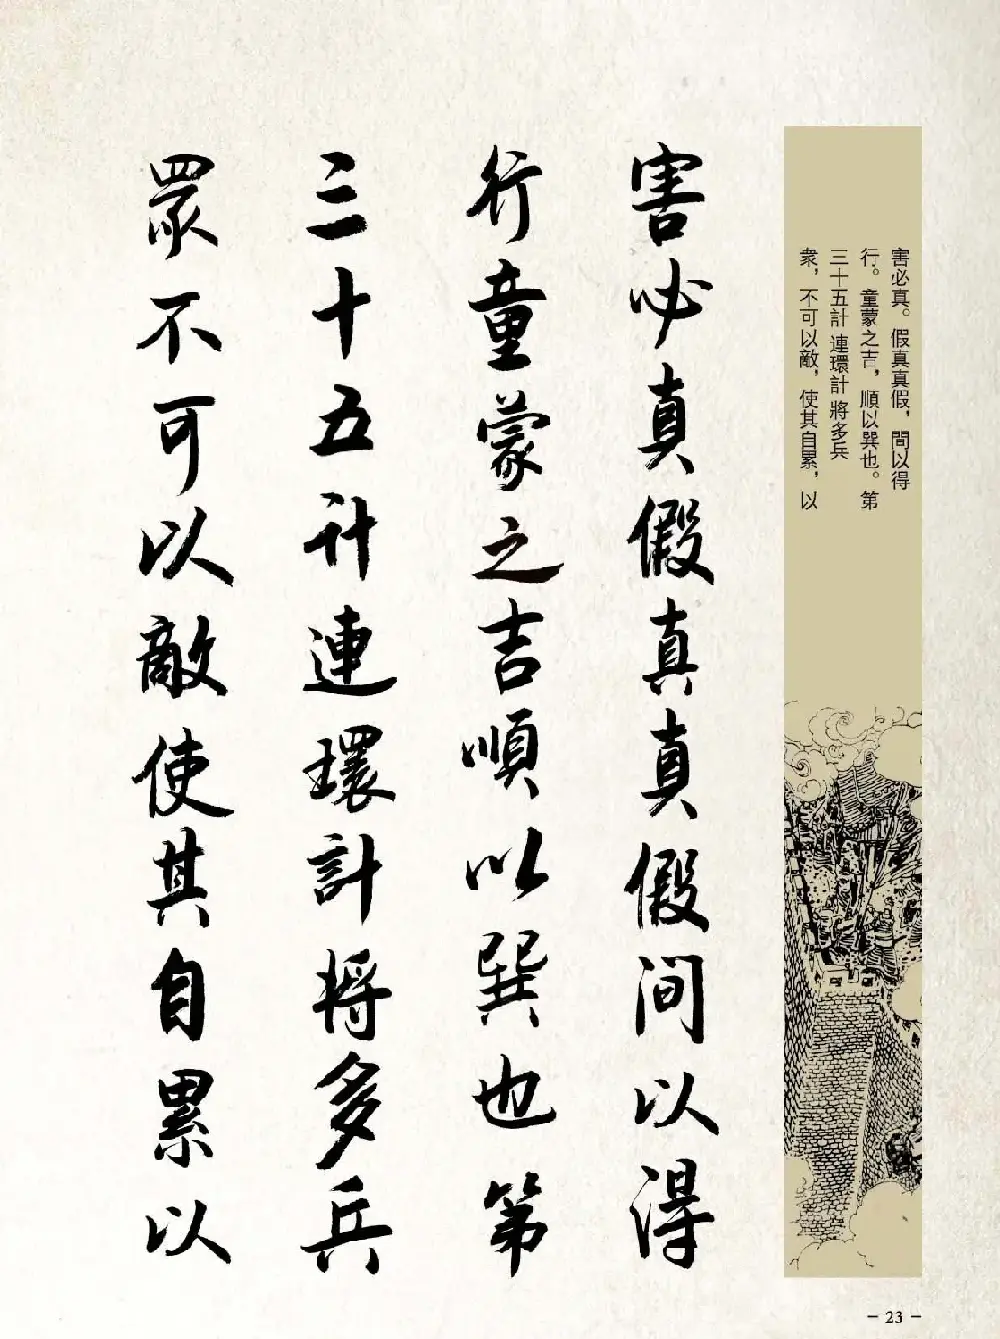 害必真假真真假間以得
行童蒙之吉順以巽也第
三十五計連環計將多兵
眾不可以敵使其自累以
害必真。假真真假，間以得
行。童蒙之吉，順以巽也。第
三十五計 連環計 將多兵
衆，不可以敵，使其自累，以
- 23 -